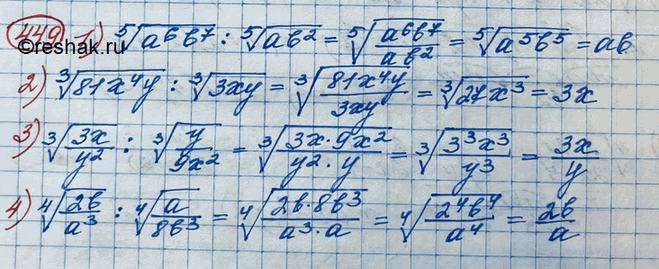 449 1) ⁵√(a⁶b⁷) : ⁵√(ab²) = ⁵√(a⁶b⁷/ab²) = ⁵√(a⁵b⁵) = ab
©reshak.ru
2) ³√(81x⁴y) : ³√(3xy) = ³√(81x⁴y/3xy) = ³√(27x³) = 3x
3) ³√(3x/y²) : ³√(y/9x²) = ³√(3x·9x²/y²·y) = ³√(3³x³/y³) = 3x/y
4) ⁴√(2b/a³) : ⁴√(a/8b³) = ⁴√(2b·8b³/a³·a) = ⁴√(2⁴b⁴/a⁴) = 2b/a